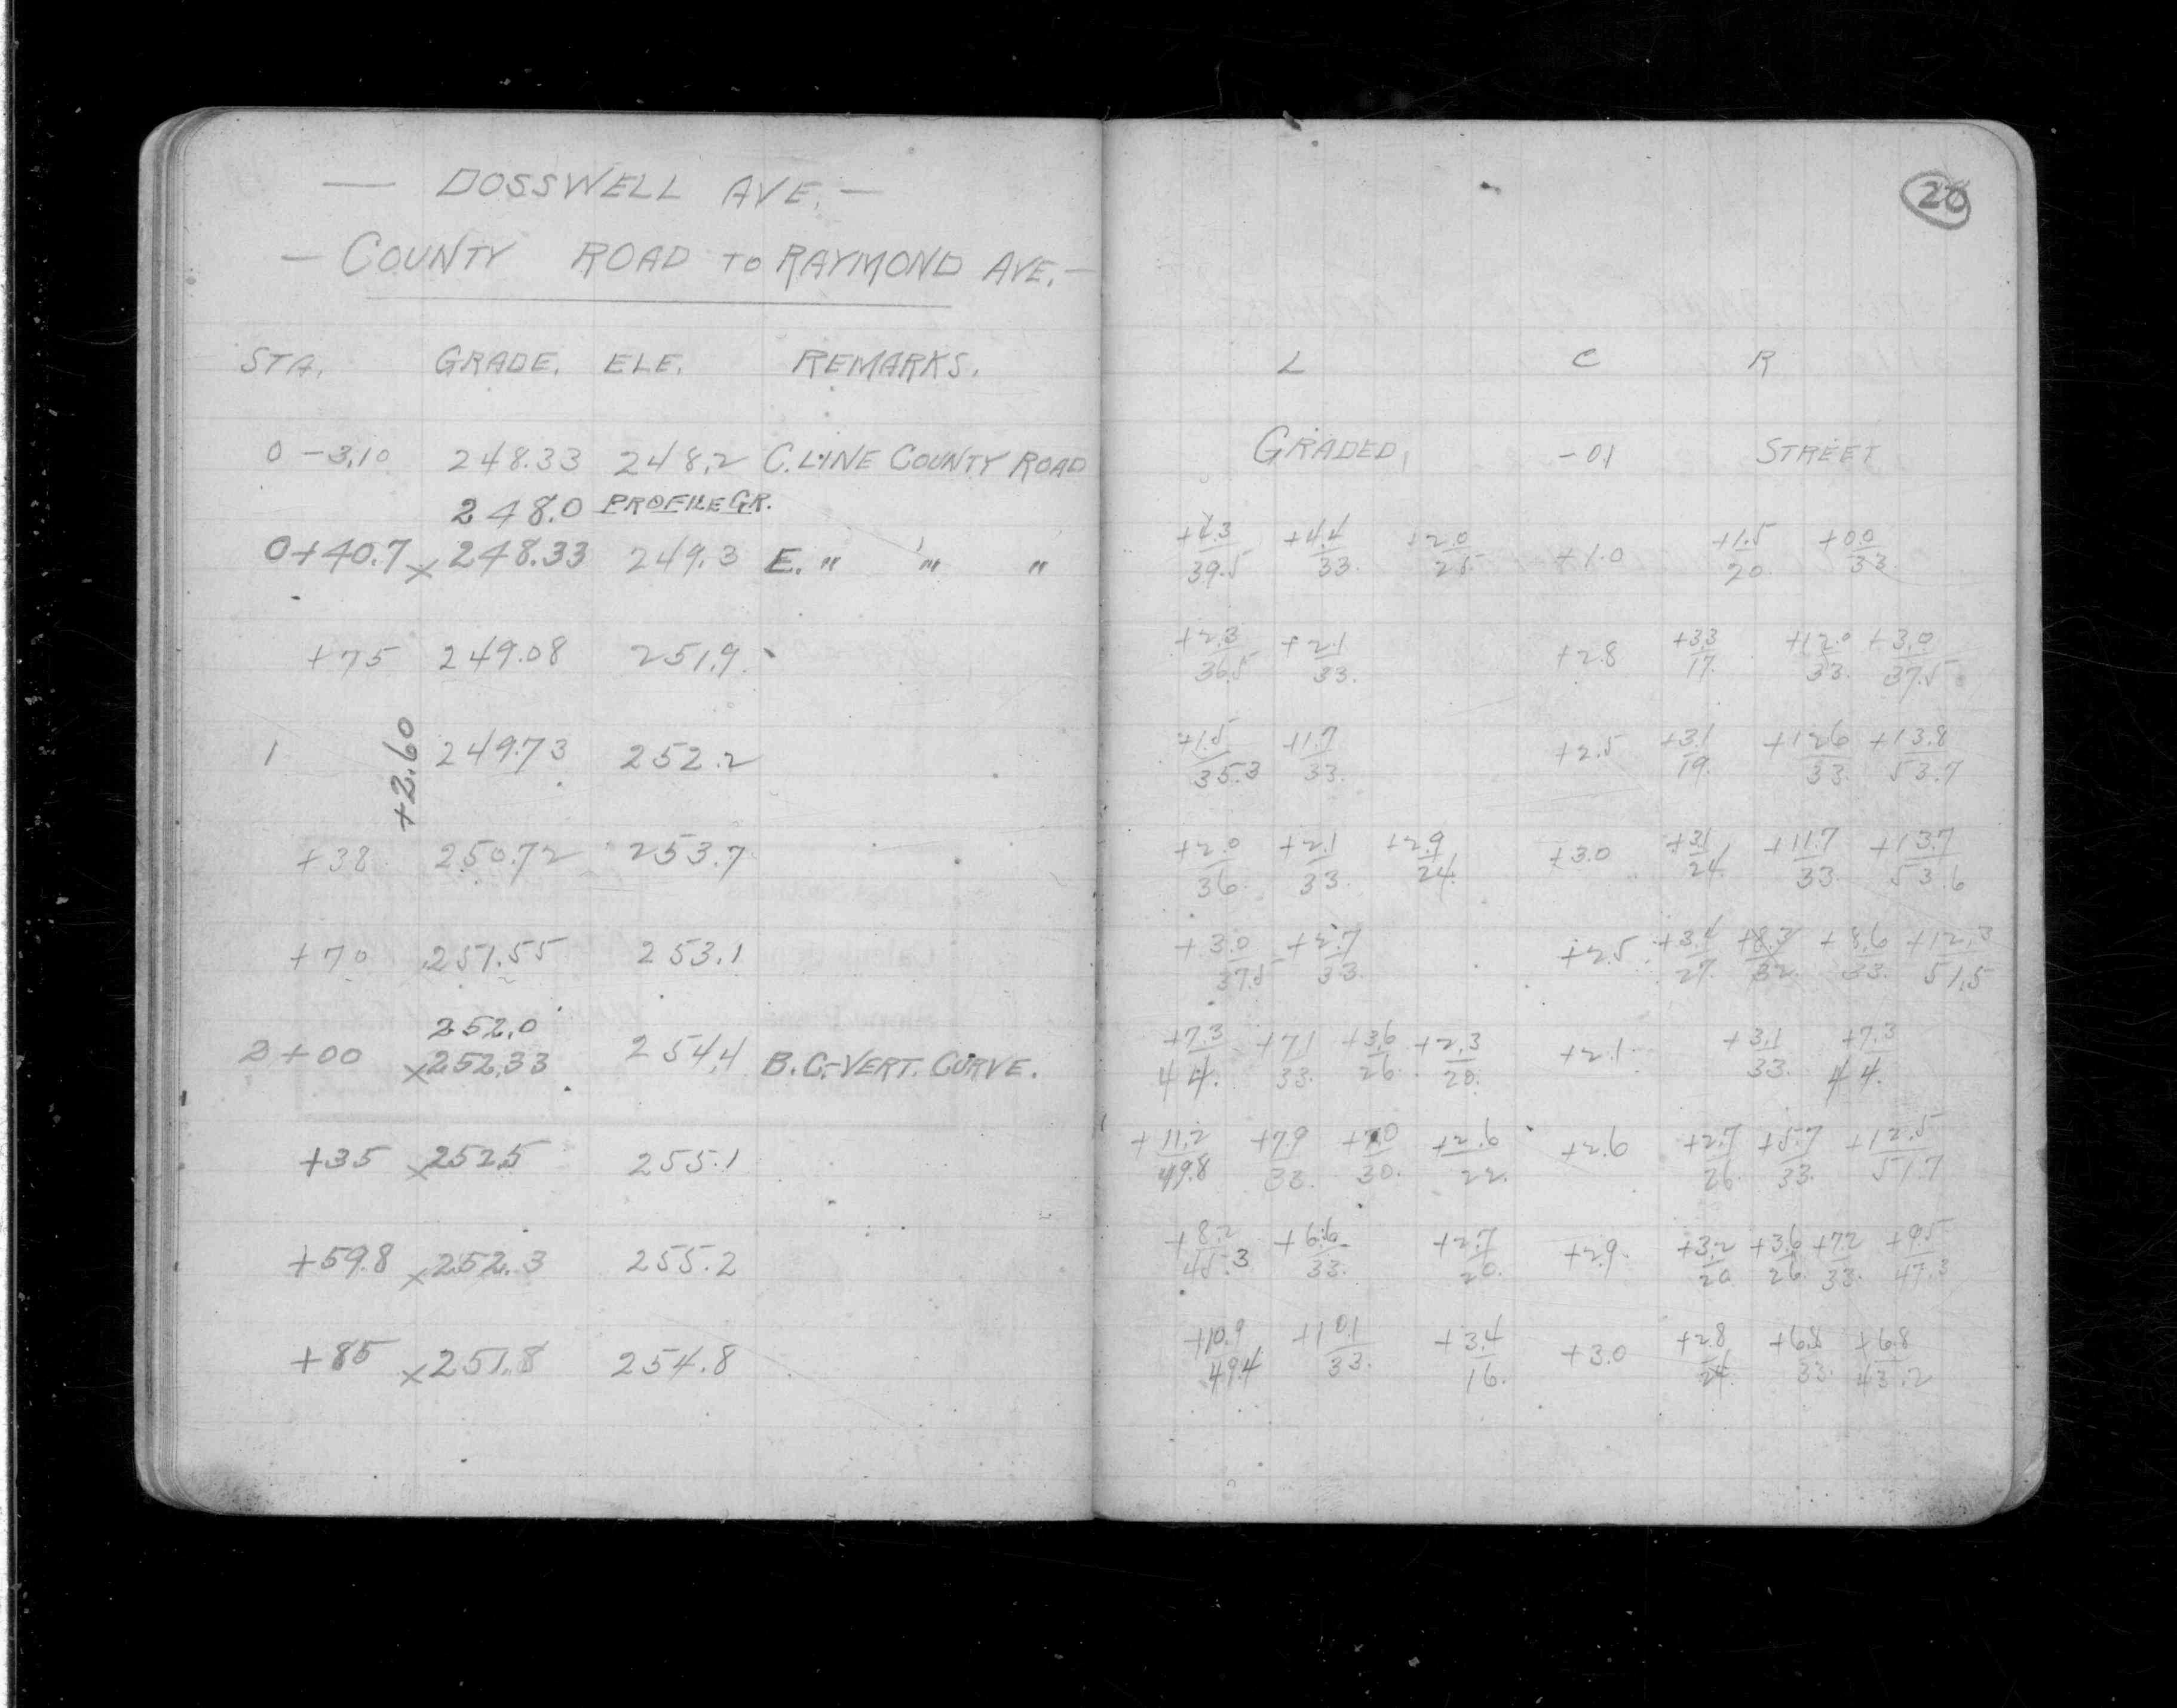 — DOSSWELL AVE. —
— COUNTY ROAD TO RAYMOND AVE. —
STA. GRADE. ELE. REMARKS.
0 -3.10 248.33 248.2 C. LINE COUNTY ROAD
248.0 PROFILE GR.
0+40.7 x 248.33 249.3 E. " " "
+75 249.08 251.9
+2.60
1 249.73 252.2
+38 250.72 253.7
+70 251.55 253.1
252.0
2+00 x252.33 254.4 B.C.-VERT. CURVE.
+35 x252.5 255.1
+59.8 x252.3 255.2
+85 x251.8 254.8
20
L C R
GRADED, -0.1 STREET
+4.3 +4.4 +2.0 +1.0 +1.5 +0.0
39.5 33. 25 20. 33.
+2.3 +2.1 +2.8 +3.3 +12.0 +3.0
36.5 33. 17. 33. 37.5
+1.5 +1.7 +2.5 +3.1 +12.6 +13.8
35.3 33. 19. 33. 53.7
+2.0 +2.1 +2.9 +3.0 +3.1 +11.7 +13.7
36. 33. 24. 24. 33. 53.6
+3.0 +2.7 +2.5 +3.4 +8.3 +8.6 +12.3
37.5 33. 27. 32. 33. 51.5
+7.3 +7.1 +3.6 +2.3 +2.1 +3.1 +7.3
44. 33. 26. 20. 33. 44.
+11.2 +7.9 +7.0 +2.6 +2.6 +2.7 +5.7 +12.5
49.8 33. 30. 22. 26. 33. 51.7
+8.2 +6.6 +2.7 +2.9 +3.2 +3.6 +7.2 +9.5
45.3 33. 20. 20. 26. 33. 47.3
+10.9 +10.1 +3.4 +3.0 +2.8 +6.8 +6.8
49.4 33. 16. 24. 33. 43.2